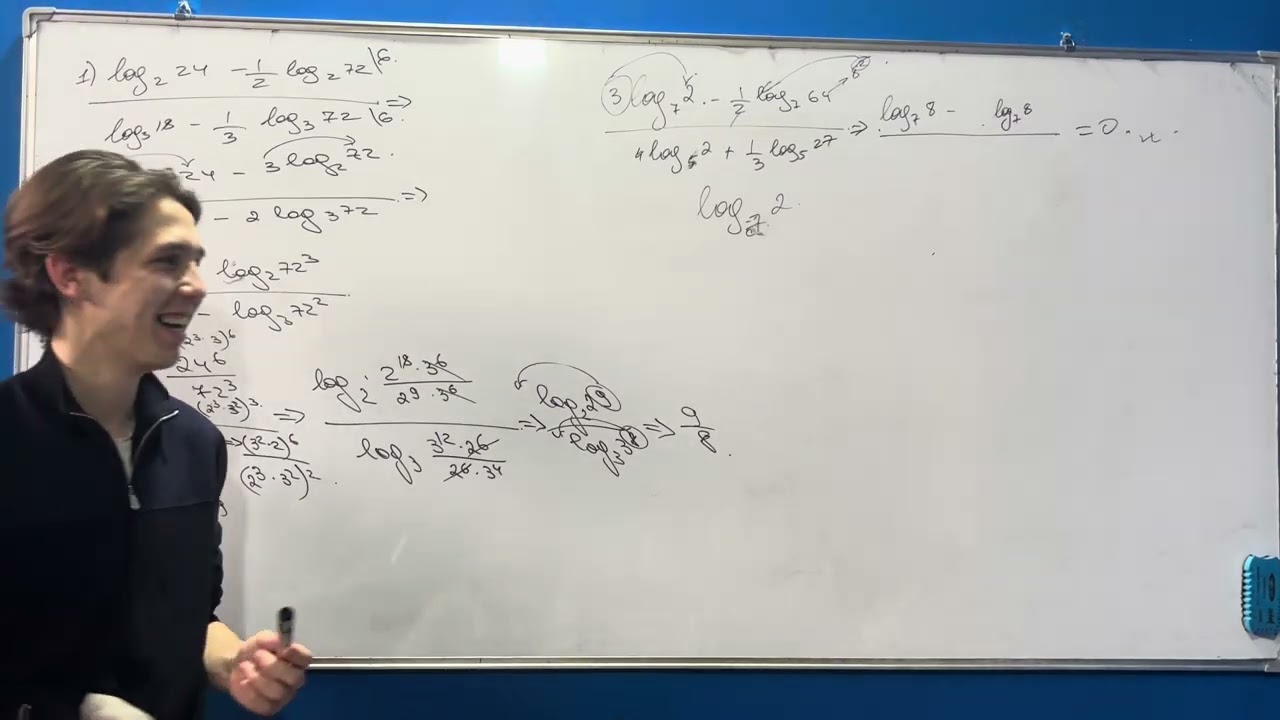 1) log₂ 24 - 1/2 log₂ 72 \6.
log₃ 18 - 1/3 log₃ 72 \6 =>
24 - 3 log₂ 72.
- 2 log₃ 72 =>
log₂ 72³
- log₃ 72²
(2³·3)⁶
24⁶
72³
(2³·3²)³ =>
=> (3²·2)⁶
(2³·3²)²
log₂ 2¹⁸·3⁶ / 2⁹·3⁶
log₃ 3¹²·2⁶ / 2⁶·3⁴ =>
log₂ 2⁹ / log₃ 3⁸ => 9/8.
3 log₇ 2 - 1/2 log₇ 64 8²
4 log₅ 2 + 1/3 log₅ 27 =>
log₇ 8 - log₇ 8 = 0.
log₇ 2.